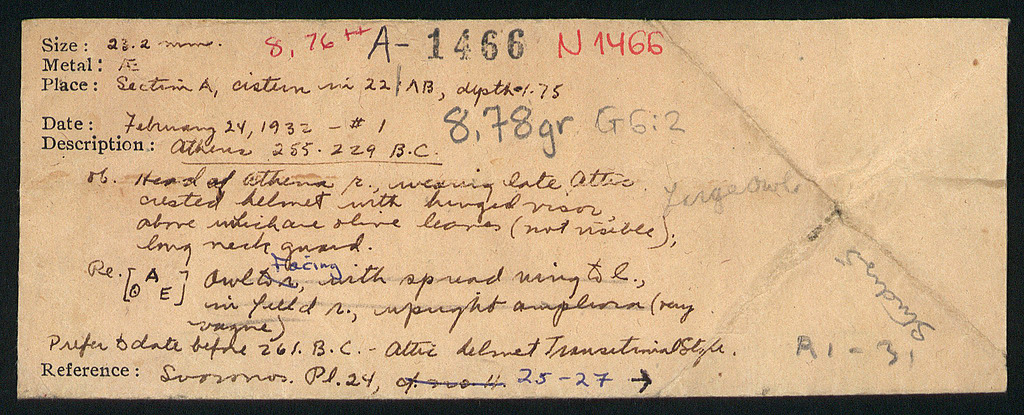 Size: 23.2 mm. 8,76 ++ A-1466 N1466
Metal: Æ
Place: Section A, cistern in 22/ΛB, depth -1.75
Date: February 24, 1932 - #1 8,78gr G6:2
Description: Athens 255-229 B.C.
ob. Head of Athena r., wearing late Attic
crested helmet with hinged visor,
above which are olive leaves (not visible);
long neck guard.
Large Owl
Re. [A ΘE] Owl to r, Facing with spread wing to l.,
in field r., upright amphora (very
vague)
Studies
Prefer to date before 261. B.C. - Attic helmet Transitional Style.
A1-31
Reference: Svoronos. Pl. 24, 25-27 →